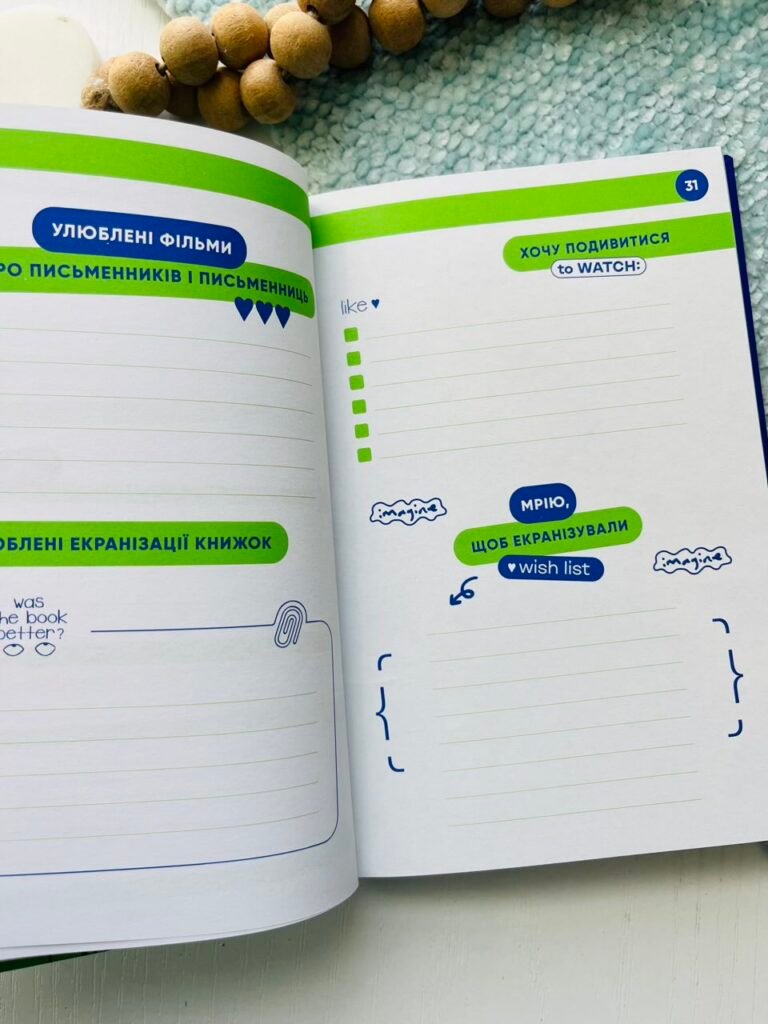 УЛЮБЛЕНІ ФІЛЬМИ
РО ПИСЬМЕННИКІВ І ПИСЬМЕННИЦЬ
ЕКРАНІЗАЦІЇ КНИЖОК
was
he book
etter?
31
ХОЧУ ПОДИВИТИСЯ
to WATCH:
like
imagine
МРІЮ,
ЩОБ ЕКРАНІЗУВАЛИ
wish list
imagine